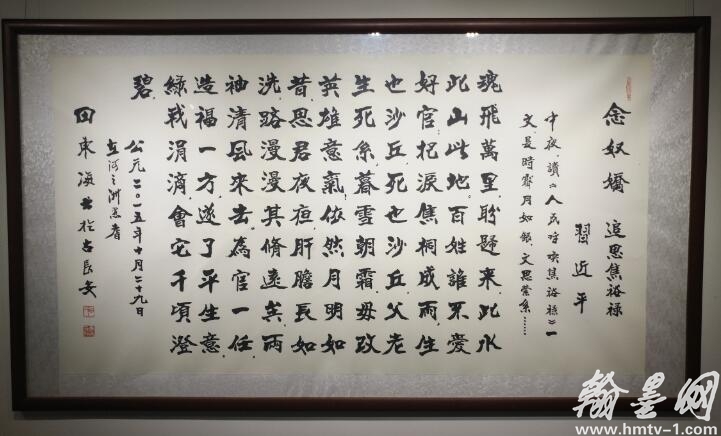 念奴嬌 追思焦裕禄
習近平
中夜,讀《人民呼喚焦裕禄》一
文,是時霽月如銀,文思縈系……
魂飛萬里,盼歸來此水
此山此地。百姓誰不愛
好官?把淚焦桐成雨。生
也沙丘,死也沙丘,父老
生死系。暮雪朝霜,毋改
英雄意氣!依然月明如
昔,思君夜夜,肝膽長如
洗。路漫漫其脩遠矣,兩
袖清風來去。為官一任,
造福一方,遂了平生意。
綠我涓滴,會它千頃澄
碧。
公元二〇一五年十月二十九日
在河之洲
田東海書於古長安
翰墨网
www.hmtv-1.com